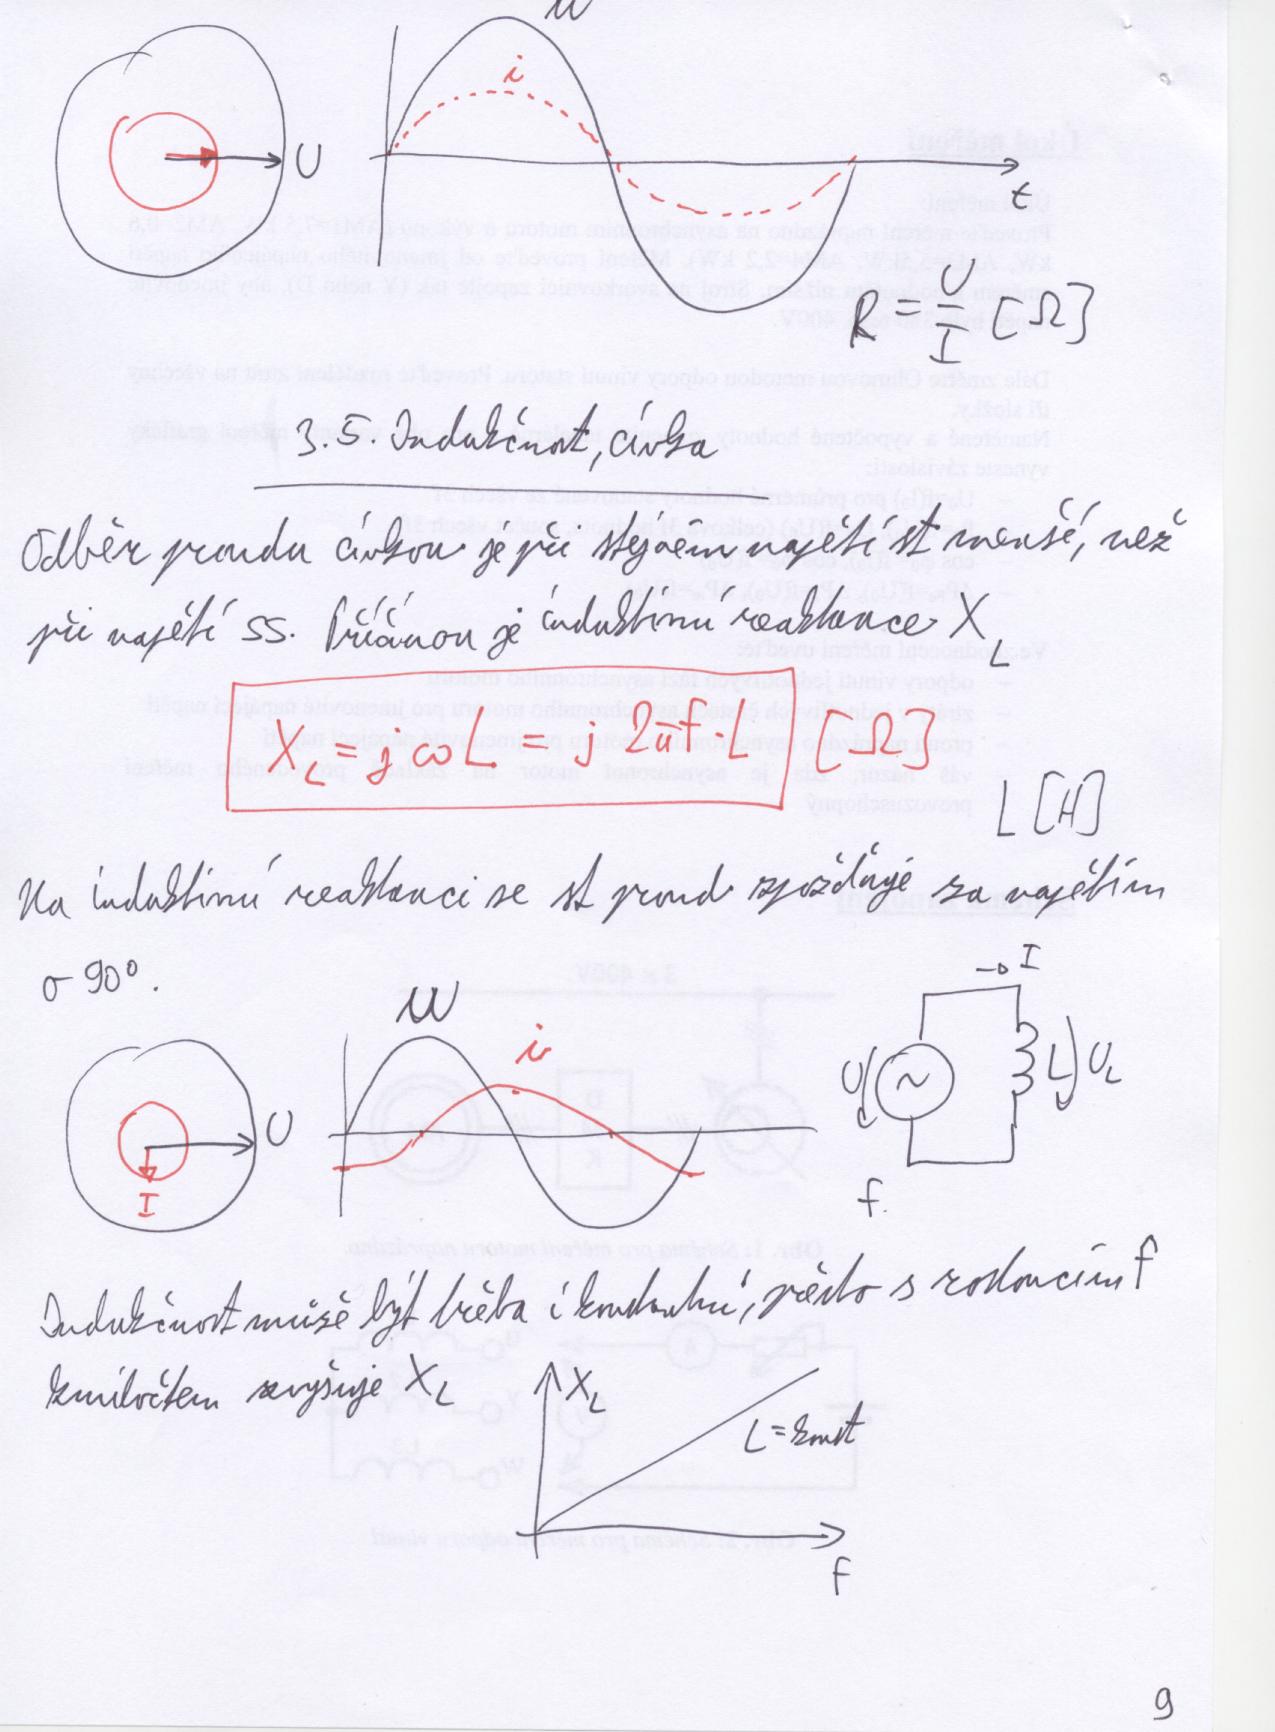 u
i
U
t
R = U/I [Ω]
3.5. Indukčnost, cívka
Odběr proudu cívkou je při stejném napětí st menší, než
při napětí ss. Příčinou je induktivní reaktance X_L
X_L = jωL = j2πf·L [Ω]
L [H]
Na induktivní reaktanci se st proud zpožďuje za napětím
o 90°.
u
i
U
I
→ I
U
~
L
U_L
f.
Indukčnost může být třeba i konstantní, přesto s rostoucím f
kmitočtem zvyšuje X_L
X_L
L = konst
f
9